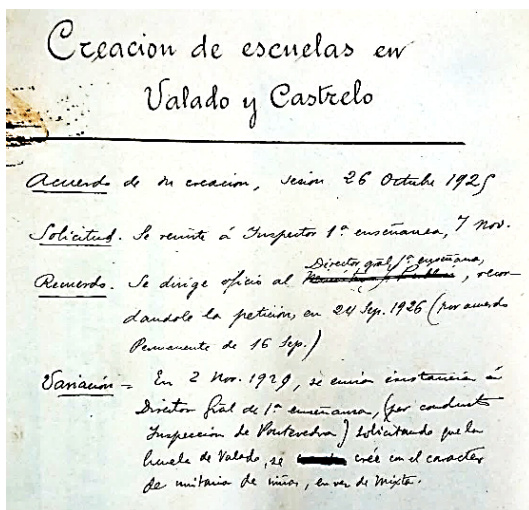 Creacion de escuelas en
Valado y Castrelo
Acuerdo de su creacion, sesion 26 Octubre 1925
Solicitud. Se remite á Inspector 1ª enseñanza, 7 Nov.
Director gral 1ª enseñanza,
Recuerdo. Se dirige oficio al , recor-
dandole la peticion, en 24 Sep. 1926 (por acuerdo
Permanente de 16 Sep.)
Variación = En 2 Nov. 1929, se envia instancia á
Director Gral de 1ª enseñanza, (por conducto
Inspeccion de Pontevedra) solicitando que la
Escuela de Valado, se creé con el caracter
de unitaria de niños, en vez de Mixta.